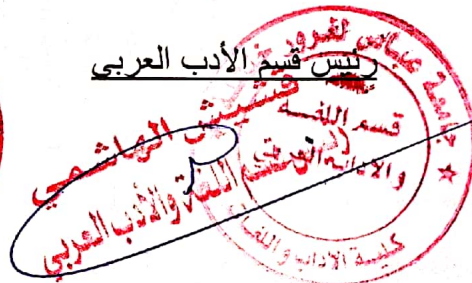 رئيس قسم الأدب العربي
جامعة عباس لغرور
قسم اللغة
والأدب العربي
كلية الآداب واللغات
قشيش الهاشمي
رئيس قسم اللغة والأدب العربي